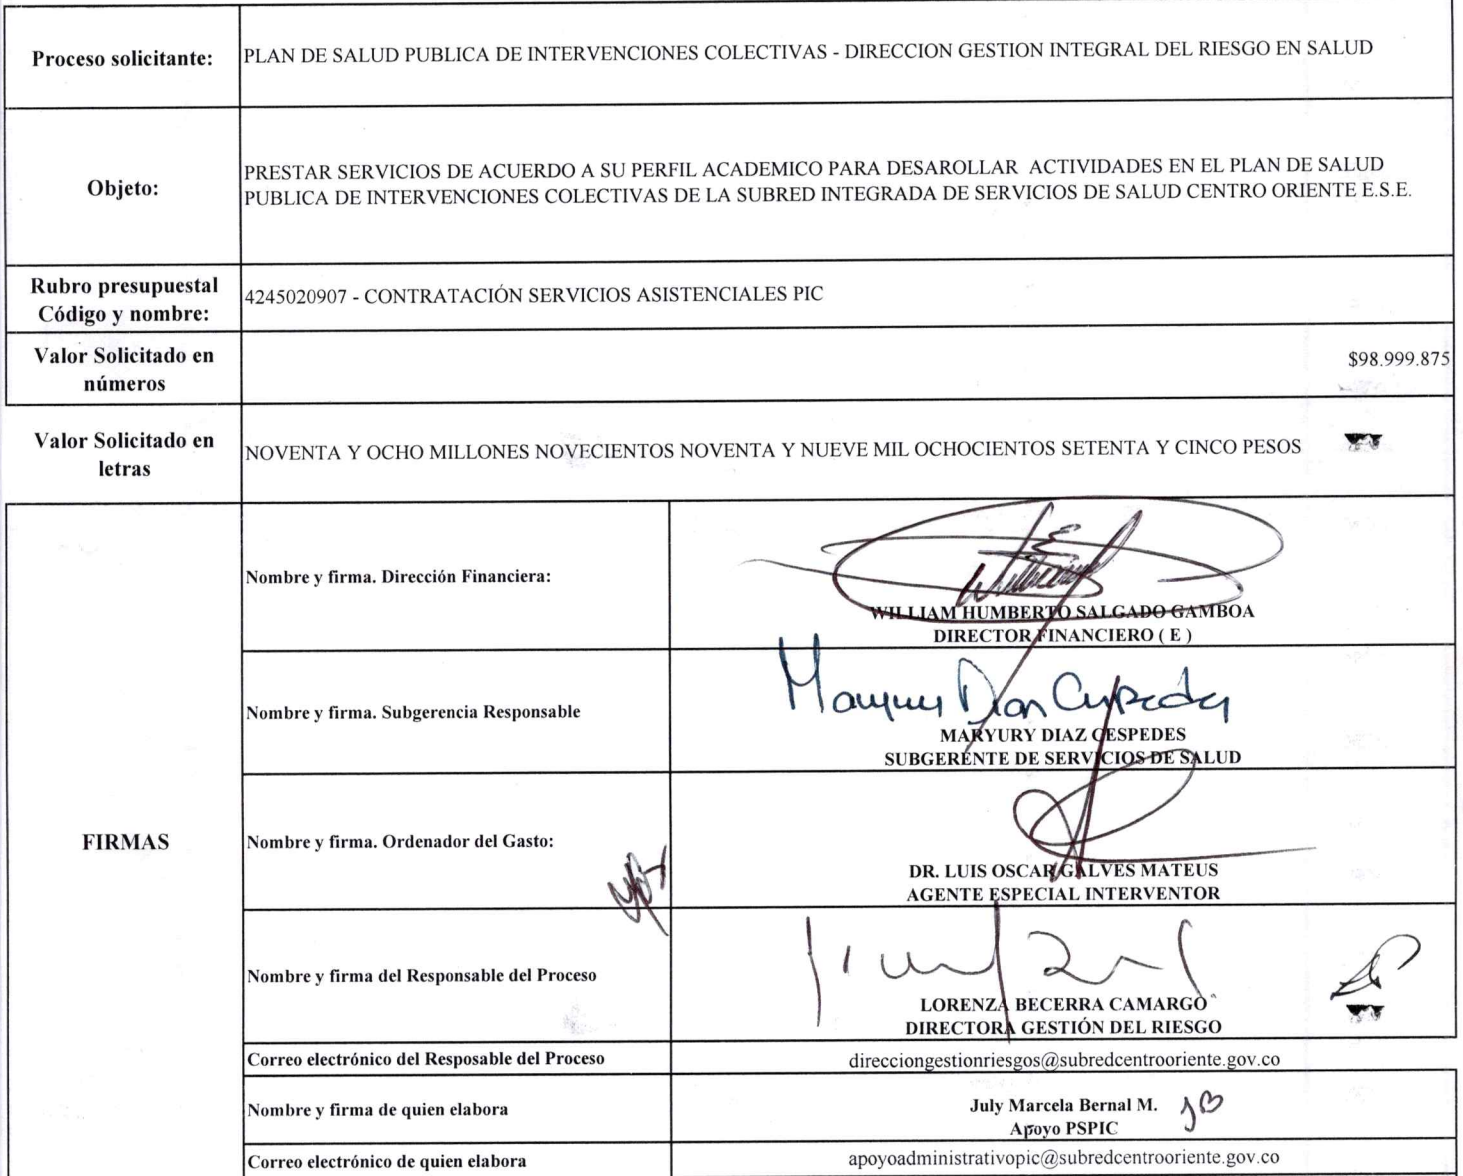 Proceso solicitante:
PLAN DE SALUD PUBLICA DE INTERVENCIONES COLECTIVAS - DIRECCION GESTION INTEGRAL DEL RIESGO EN SALUD
Objeto:
PRESTAR SERVICIOS DE ACUERDO A SU PERFIL ACADEMICO PARA DESAROLLAR ACTIVIDADES EN EL PLAN DE SALUD
PUBLICA DE INTERVENCIONES COLECTIVAS DE LA SUBRED INTEGRADA DE SERVICIOS DE SALUD CENTRO ORIENTE E.S.E.
Rubro presupuestal
Código y nombre:
4245020907 - CONTRATACIÓN SERVICIOS ASISTENCIALES PIC
Valor Solicitado en
números
$98.999.875
Valor Solicitado en
letras
NOVENTA Y OCHO MILLONES NOVECIENTOS NOVENTA Y NUEVE MIL OCHOCIENTOS SETENTA Y CINCO PESOS
FIRMAS
Nombre y firma. Dirección Financiera:
WILLIAM HUMBERTO SALGADO GAMBOA
DIRECTOR FINANCIERO ( E )
Nombre y firma. Subgerencia Responsable
MARYURY DIAZ CESPEDES
SUBGERENTE DE SERVICIOS DE SALUD
Nombre y firma. Ordenador del Gasto:
DR. LUIS OSCAR GALVES MATEUS
AGENTE ESPECIAL INTERVENTOR
Nombre y firma del Responsable del Proceso
LORENZA BECERRA CAMARGO
DIRECTORA GESTIÓN DEL RIESGO
Correo electrónico del Resposable del Proceso
direcciongestionriesgos@subredcentrooriente.gov.co
Nombre y firma de quien elabora
July Marcela Bernal M.
Apoyo PSPIC
Correo electrónico de quien elabora
apoyoadministrativopic@subredcentrooriente.gov.co